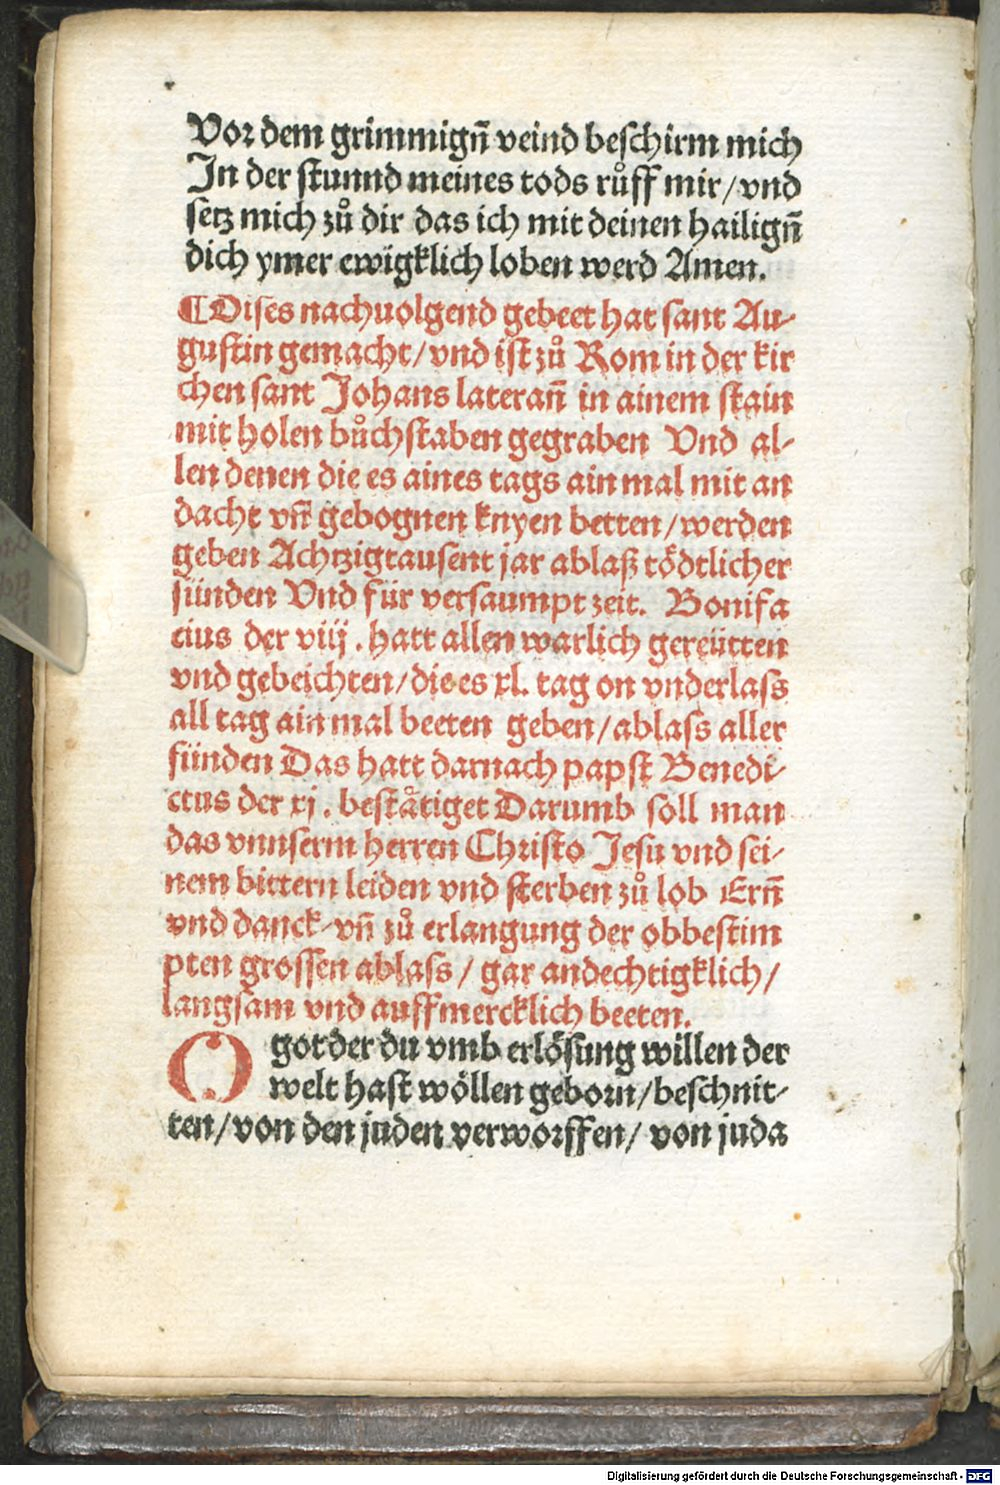 Vor dem grimmigñ veind beschirm mich
In der stunnd meines tods růff mir/vnd
setz mich zů dir das ich mit deinen hailigñ
dich ymer ewigklich loben werd Amen.
¶Dises nachuolgend gebeet hat sant Au-
gustin gemacht/vnd ist zů Rom in der kir
chen sant Johans laterañ in ainem stain
mit holen bůchstaben gegraben Vnd al-
len denen die es aines tags ain mal mit an
dacht vñ gebognen knyen betten/werden
geben Achtzigtausent jar ablaß tödtlicher
sünden Vnd für versaumpt zeit. Bonifa
cius der viij. hatt allen warlich gereütten
vnd gebeichten/die es xl. tag on vnderlass
all tag ain mal beeten geben/ablass aller
sünden Das hatt darnach papst Benedi-
ctus der xj. beståtiget Darumb soll man
das vnnserm herren Christo Jesu vnd sei-
nem bittern leiden vnd sterben zů lob Erñ
vnd danck-vñ zů erlangung der obbestim
pten grossen ablass/ gar andechtigklich/
langsam vnd auffmercklich beeten.
O got der du vmb erlösung willen der
welt hast wöllen geborn/beschnit-
ten/von den juden verworffen/ von juda
Digitalisierung gefördert durch die Deutsche Forschungsgemeinschaft - DFG